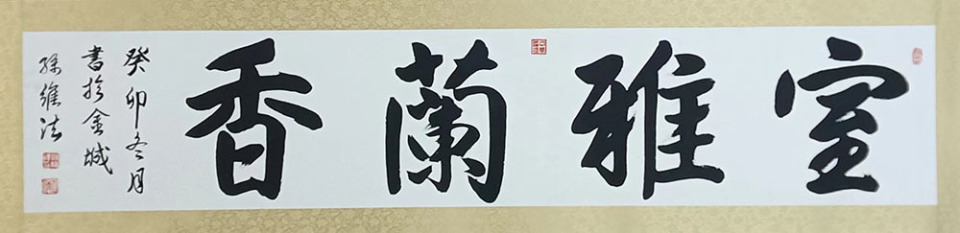 室雅蘭香
癸卯冬月
書於金城
孫維法